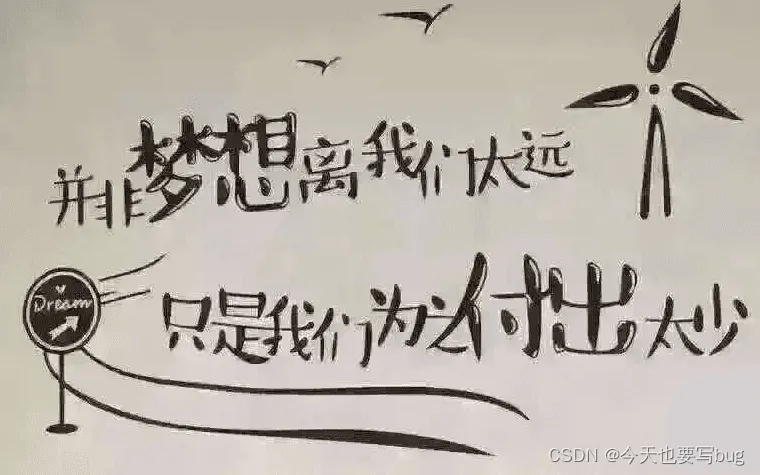 并非梦想离我们太远
Dream
只是我们为之付出太少
CSDN @今天也要写bug